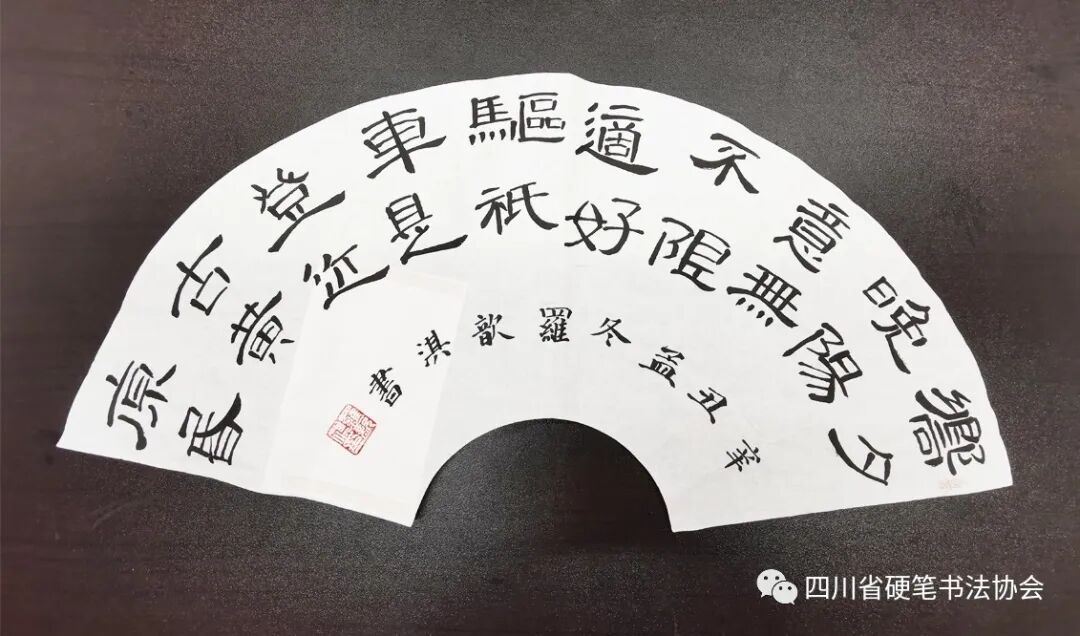 嚮晚意不適驅車登古原
夕陽無限好祇是近黃昏
辛丑孟冬羅歆淇書
四川省硬笔书法协会